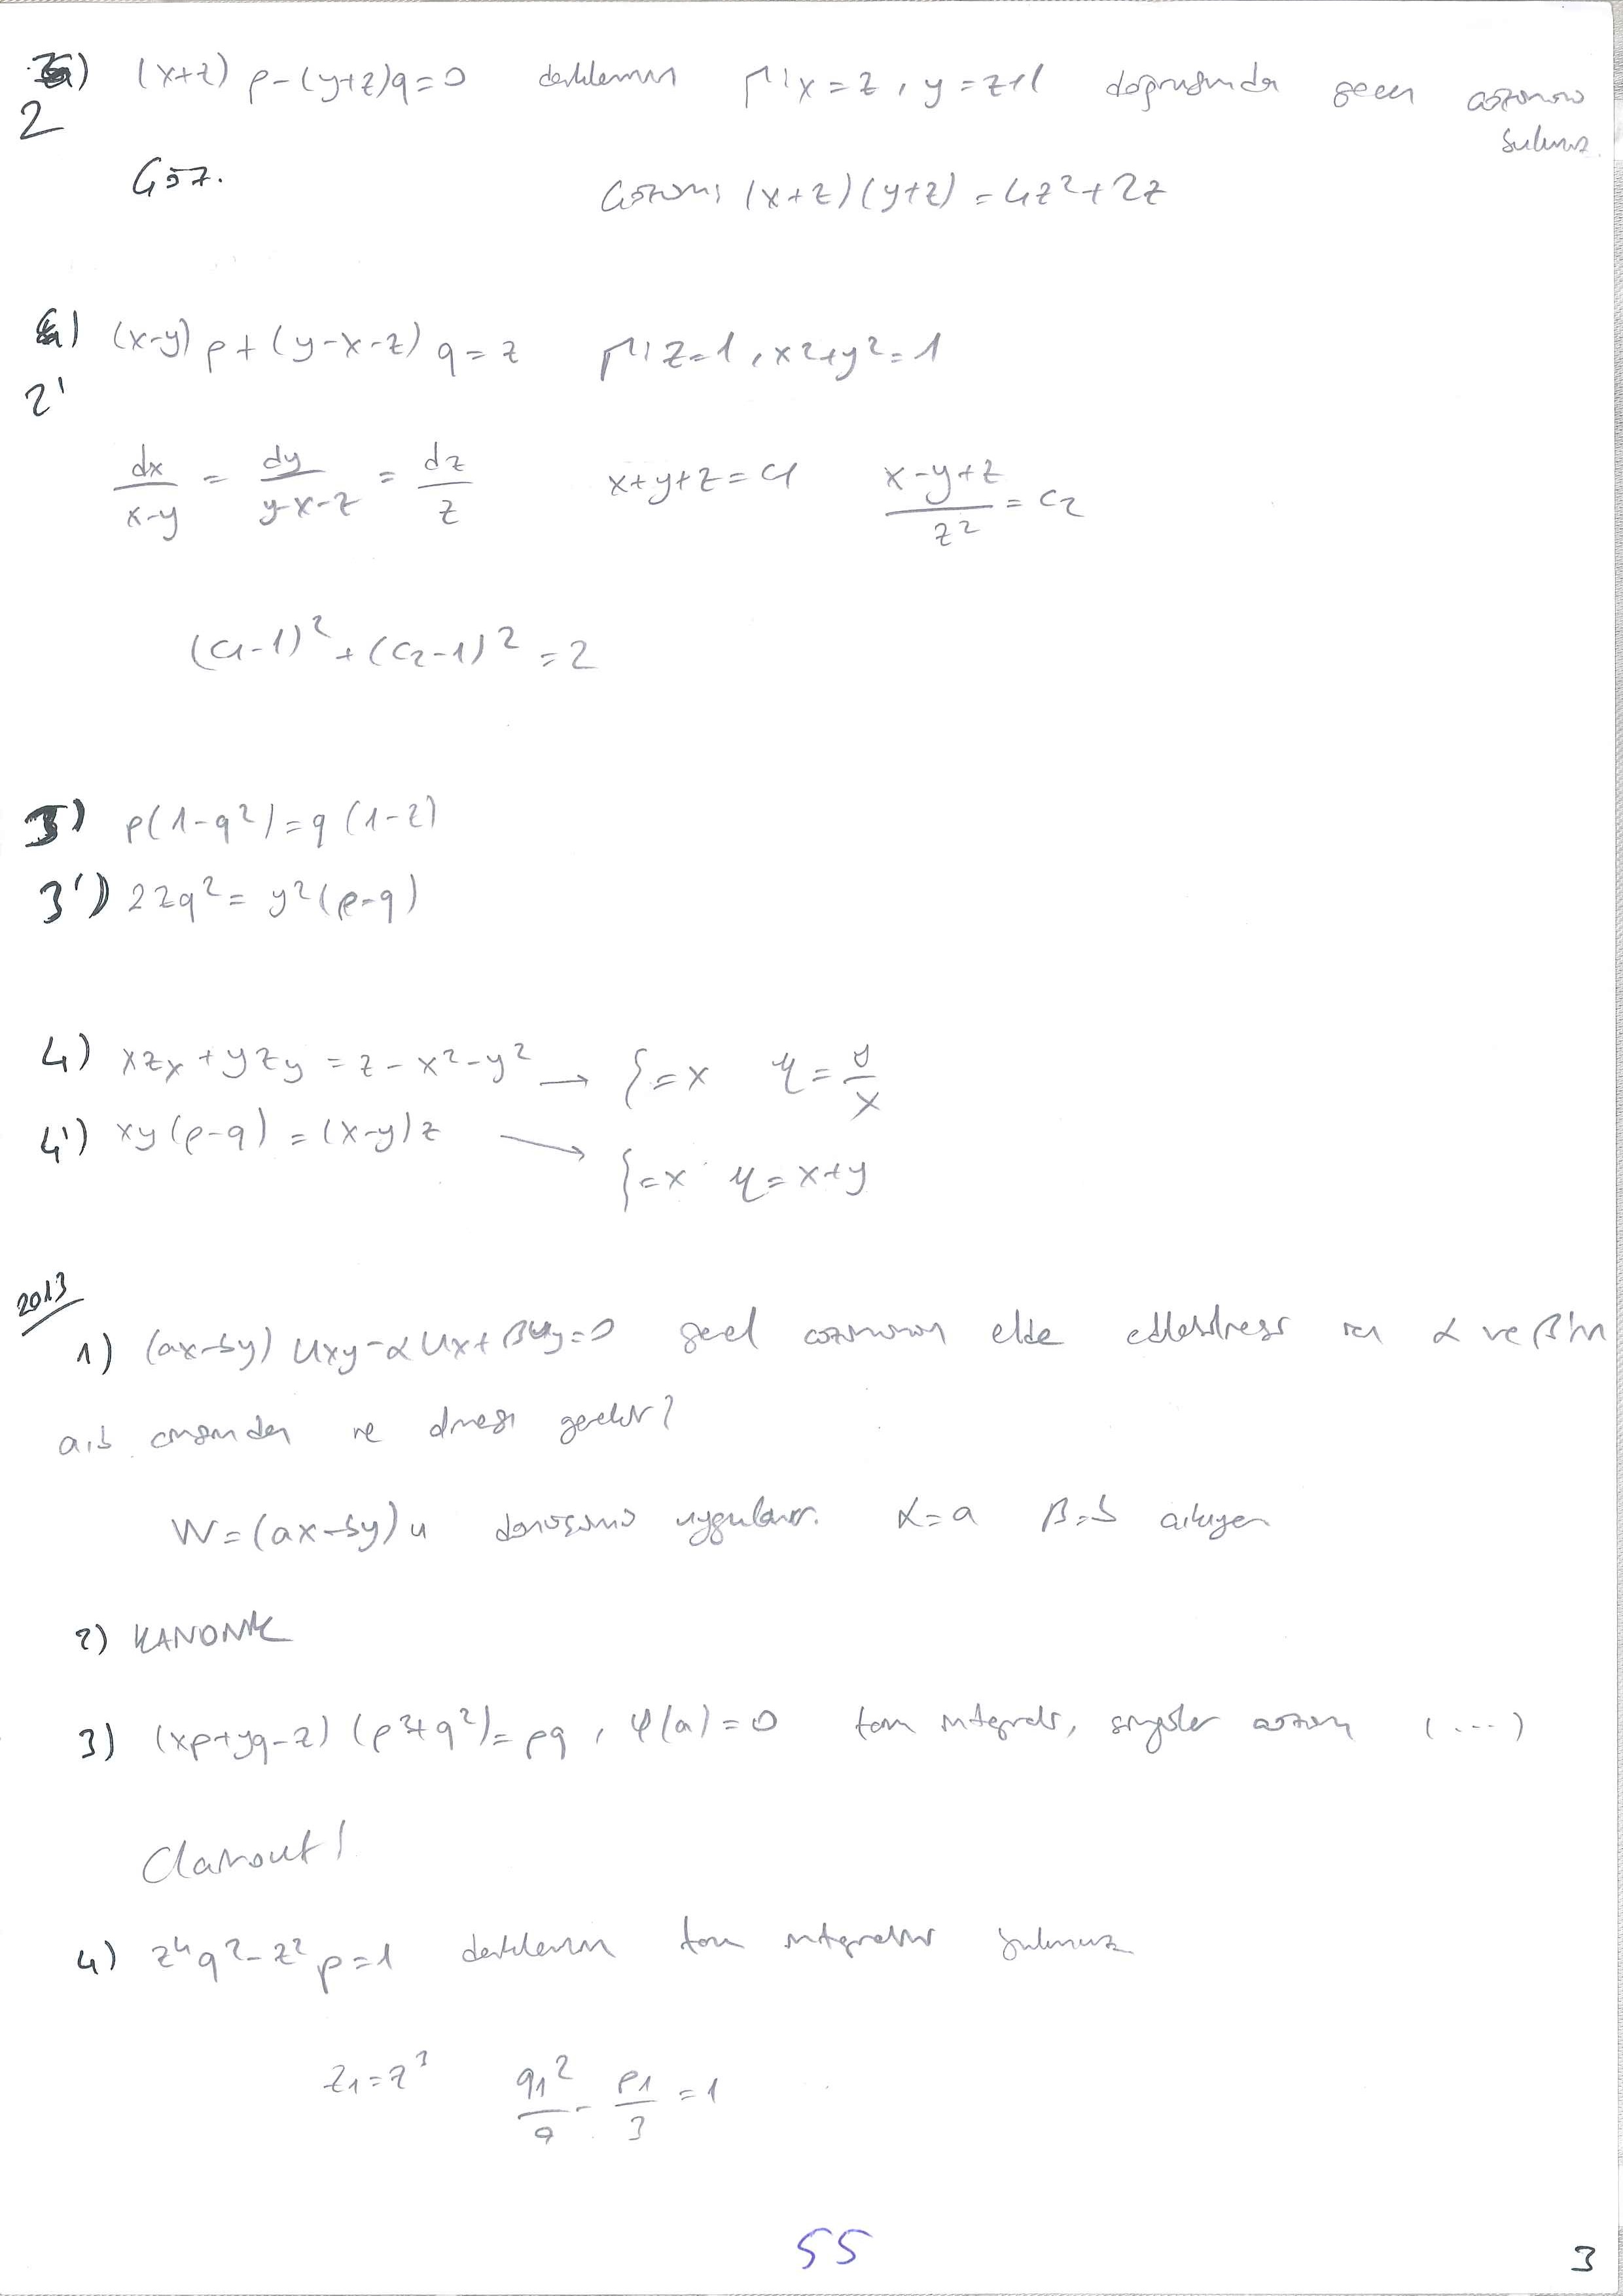 2) (x+z) p-(y+z)q=0 denklemin Γ: x=z, y=z+1 doğrusundan geçen çözümünü
bulunuz.
Çöz. Çözüm: (x+z)(y+z) = 4z²+2z
2') (x-y) p + (y-x-z) q = z Γ: z=1, x²+y²=1
dx/(x-y) = dy/(y-x-z) = dz/z x+y+z=c1 (x-y+z)/z² = c2
(c1-1)² + (c2-1)² = 2
3) p(1-q²)=q(1-z)
3') 2zq² = y²(p-q)
4) xzx + yzy = z - x² - y² → ξ=x η = y/x
4') xy(p-q) = (x-y)z → ξ=x η = x+y
2013
1) (ax-by) uxy - α ux + β uy = 0 genel çözümünün elde edilebilmesi için α ve β'nın
a,b cinsinden ne olması gerekir?
W = (ax-by)u dönüşümü uygulanır. α=a β=b
2) KANONİK
3) (xp+yq-z) (p²+q²) = pq, φ(a)=0 tam integrali, singüler çözüm (...)
Clairaut!
4) z⁴q² - z²p = 1 denklemin tam integralini bulunuz
z1 = z³ q1²/9 - p1/3 = 1
55
3